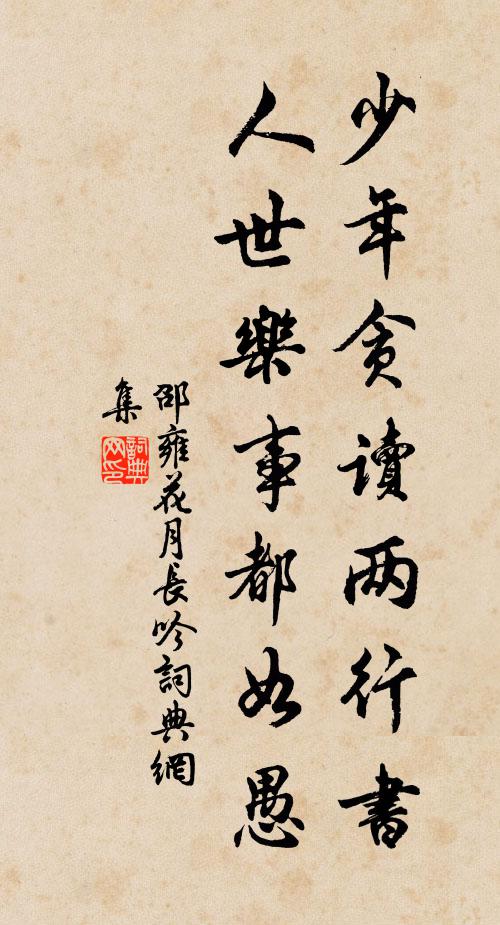 少年贪讀两行書
人世樂事都如愚
邵雍花月長吟詞典網
集
詞典
网印